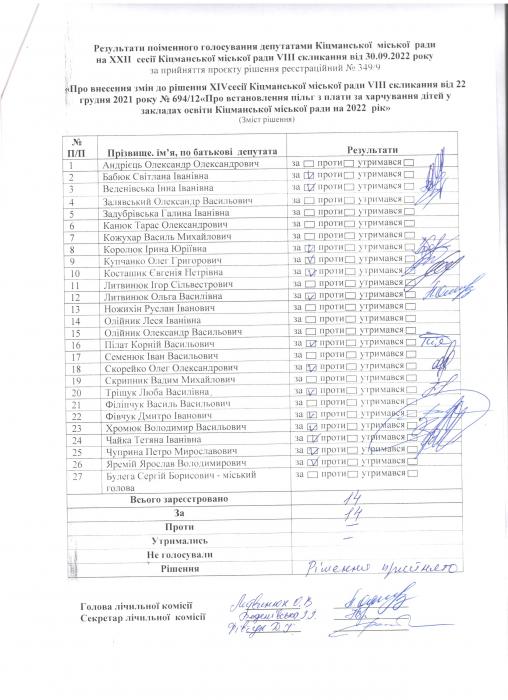 Результати поіменного голосування депутатами Кіцманської міської ради
на XXII сесії Кіцманської міської ради VIII скликання від 30.09.2022 року
за прийняття проєкту рішення реєстраційний № 349/9
«Про внесення змін до рішення XIVсесії Кіцманської міської ради VIII скликання від 22
грудня 2021 року № 694/12«Про встановлення пільг з плати за харчування дітей у
закладах освіти Кіцманської міської ради на 2022 рік»
(Зміст рішення)
№ П/П Прізвище. ім’я, по батькові депутата Результати
1 Андрієць Олександр Олександрович за проти утримався
2 Бабюк Світлана Іванівна за проти утримався
3 Веденівська Інна Іванівна за проти утримався
4 Залявський Олександр Васильович за проти утримався
5 Задубрівська Галина Іванівна за проти утримався
6 Канюк Тарас Олександрович за проти утримався
7 Кожухар Василь Михайлович за проти утримався
8 Королюк Ірина Юріївна за проти утримався
9 Купчанко Олег Григорович за проти утримався
10 Косташик Євгенія Петрівна за проти утримався
11 Литвинюк Ігор Сільвестрович за проти утримався
12 Литвинюк Ольга Василівна за проти утримався
13 Ножихін Руслан Іванович за проти утримався
14 Олійник Леся Іванівна за проти утримався
15 Олійник Олександр Васильович за проти утримався
16 Пілат Корній Васильович за проти утримався
17 Семенюк Іван Васильович за проти утримався
18 Скорейко Олег Олександрович за проти утримався
19 Скрипник Вадим Михайлович за проти утримався
20 Тріщук Люба Василівна за проти утримався
21 Філіпчук Василь Васильович за проти утримався
22 Фівчук Дмитро Іванович за проти утримався
23 Хромюк Володимир Васильович за проти утримався
24 Чайка Тетяна Іванівна за проти утримався
25 Чуприна Петро Мирославович за проти утримався
26 Яремій Ярослав Володимирович за проти утримався
27 Булега Сергій Борисович - міський за проти утримався
голова
Всього зареєстровано 14
За 14
Проти —
Утримались —
Не голосували
Рішення Рішення прийнято
Голова лічильної комісії Литвинюк О.В
Секретар лічильної комісії Веденівська І.І.
Фівчук Д.І